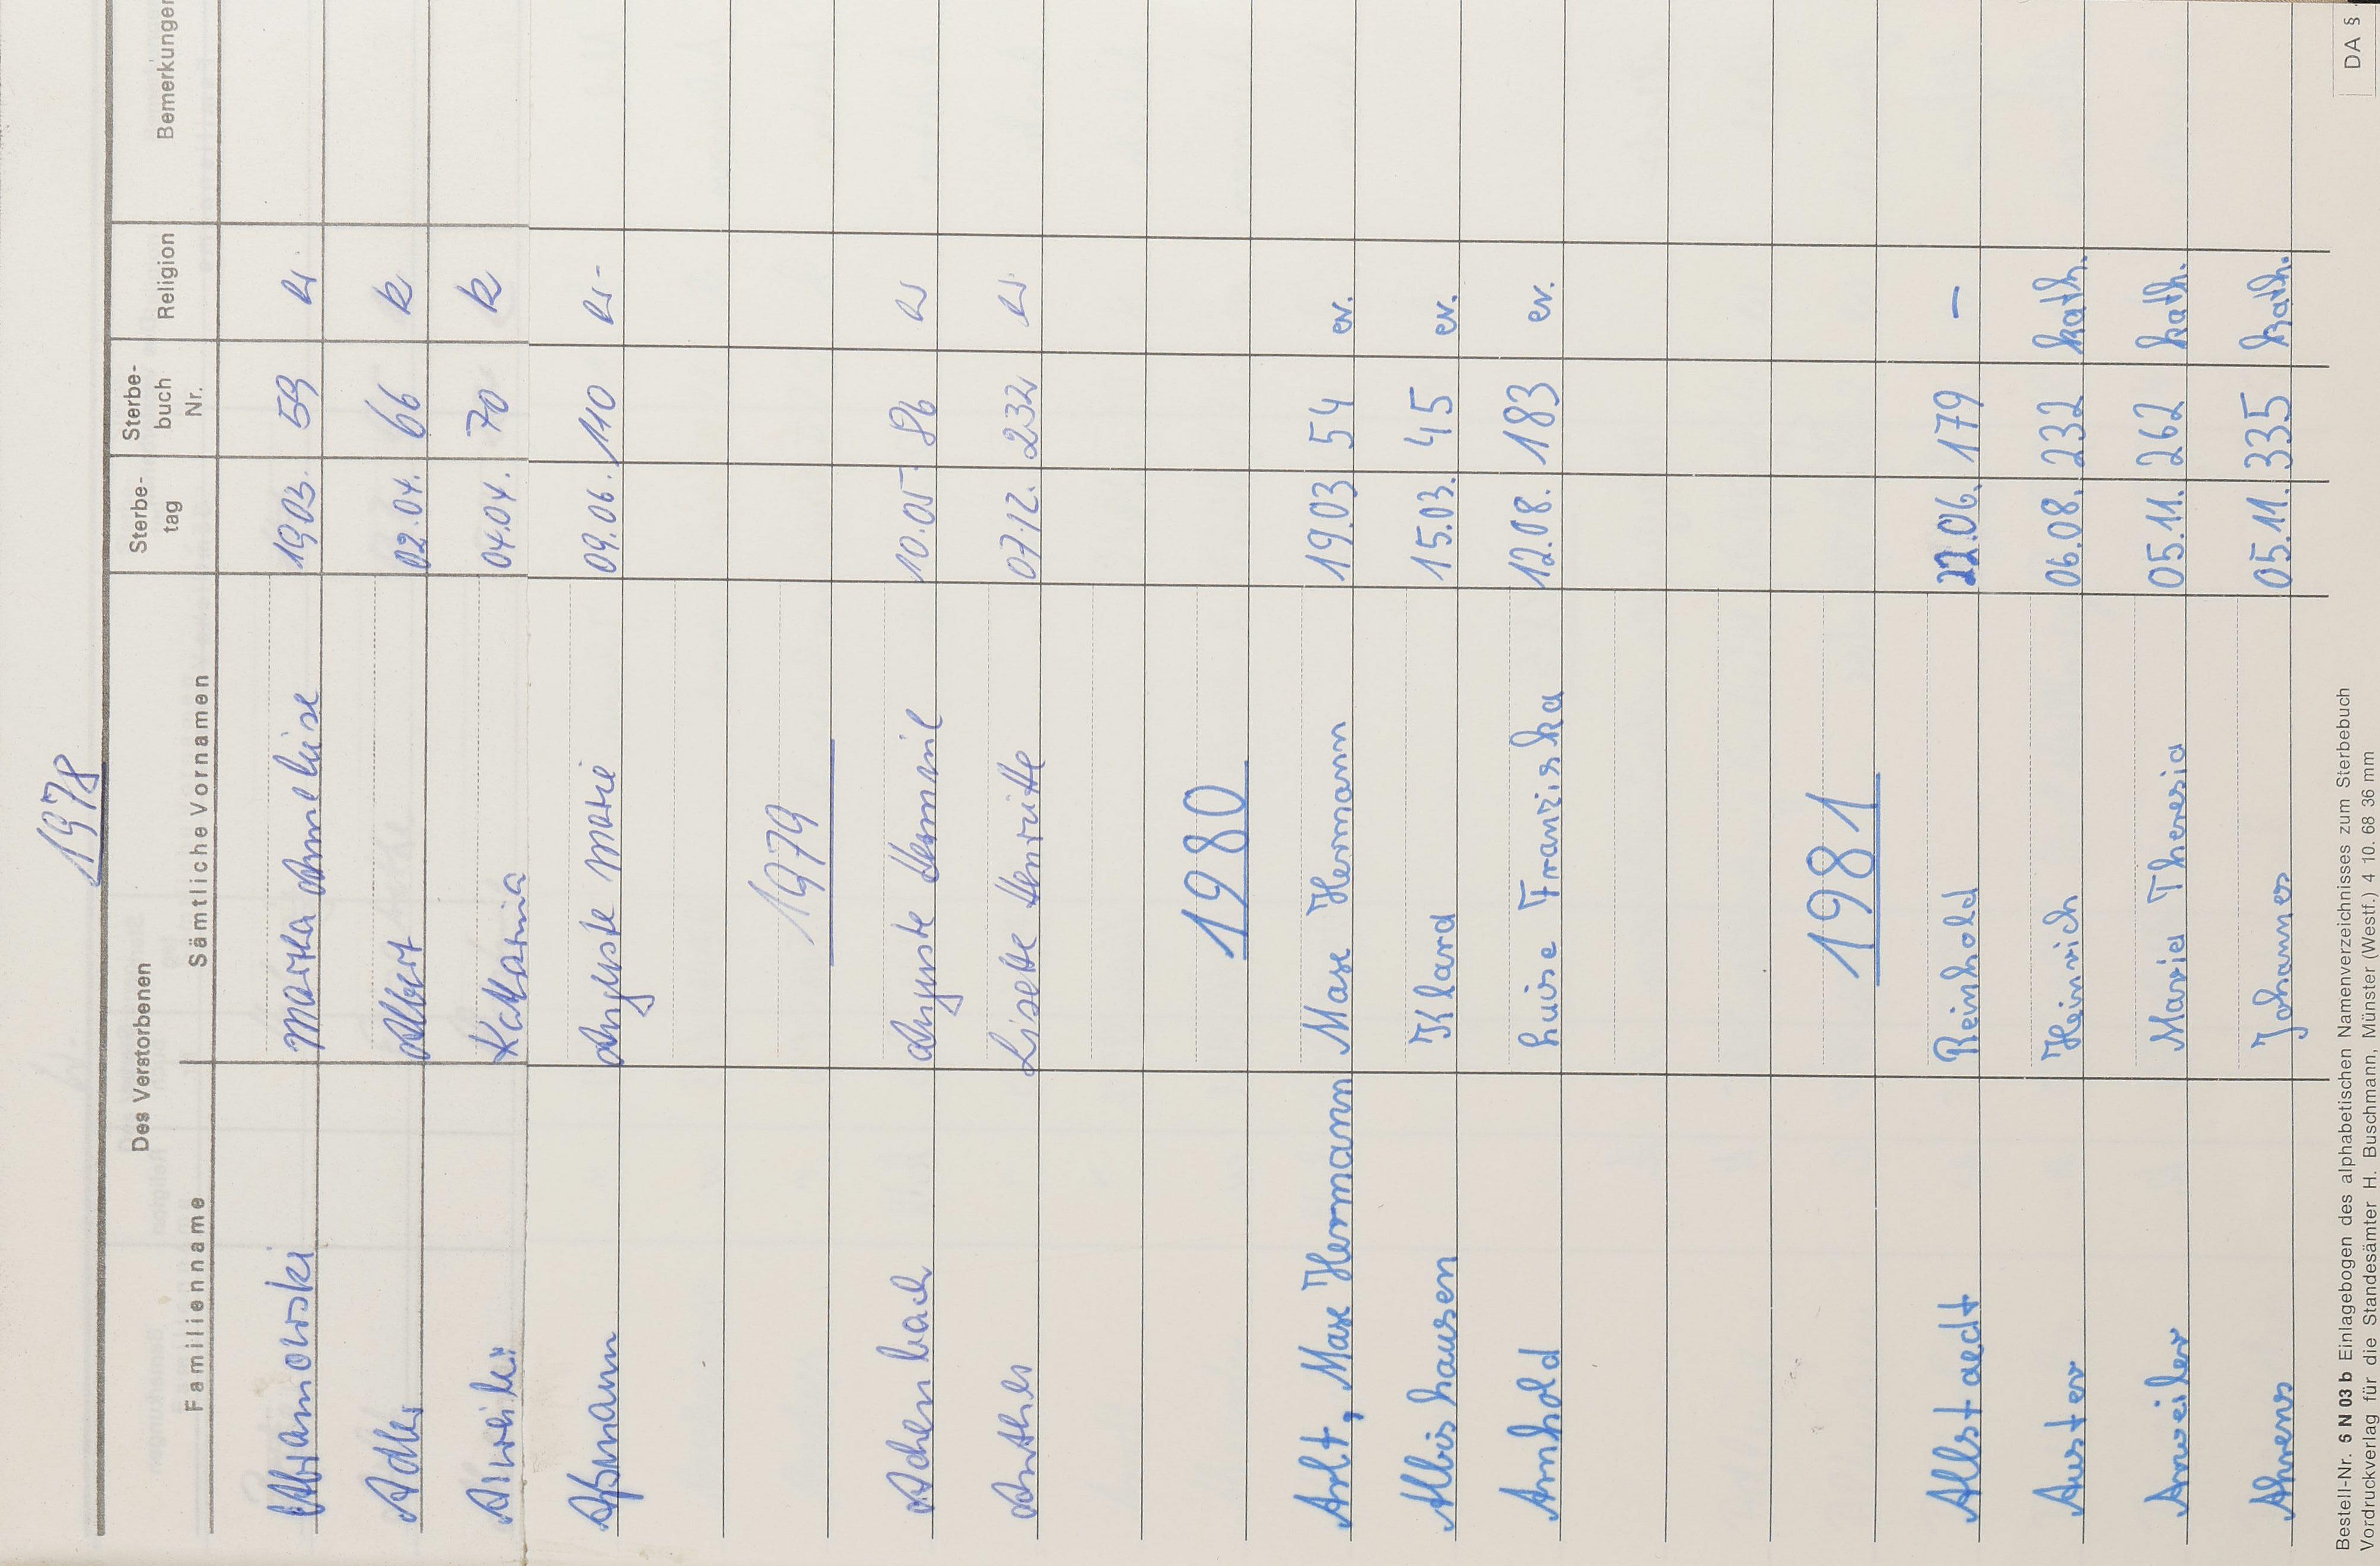 1978
Des Verstorbenen
Familienname Sämtliche Vornamen Sterbe-tag Sterbe-buch Nr. Religion Bemerkungen
Abramowski Marta Anneliese 19.03. 59 ev.
Adler Albert 02.04. 66 k
Katharina 04.04. 70 k
Aßmann Auguste Marie 09.06. 110 ev-
1979
Achenbach Auguste 10.05. 86 ev
Anthes Lisette Henriette 07.12. 232 ev.
1980
Arlt, Max Hermann Max Hermann 19.03 54 ev.
Albishausen Klara 15.03. 45 ev.
Arnhold Luise Franziska 12.08. 183 ev.
1981
Allstaedt Reinhold 22.06. 179 –
Auster Heinrich 06.08. 232 kath.
Anweiler Maria Theresia 05.11. 262 kath.
Ahrens Johannes 05.11. 335 kath.
Bestell-Nr. 5 N 03 b Einlagebogen des alphabetischen Namenverzeichnisses zum Sterbebuch
Vordruckverlag für die Standesämter H. Buschmann, Münster (Westf.) 4 10. 68 36 mm
DA §